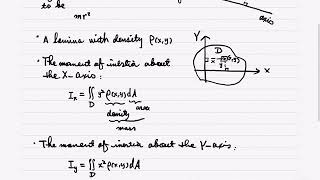 to be
mr²
axis
• A lamina with density ρ(x,y)
• The moment of inertia about
the X-axis:
I_x = ∬_D y² ρ(x,y) dA
density area
mass
Y
D
X
• The moment of inertia about the Y-axis:
I_y = ∬_D x² ρ(x,y) dA